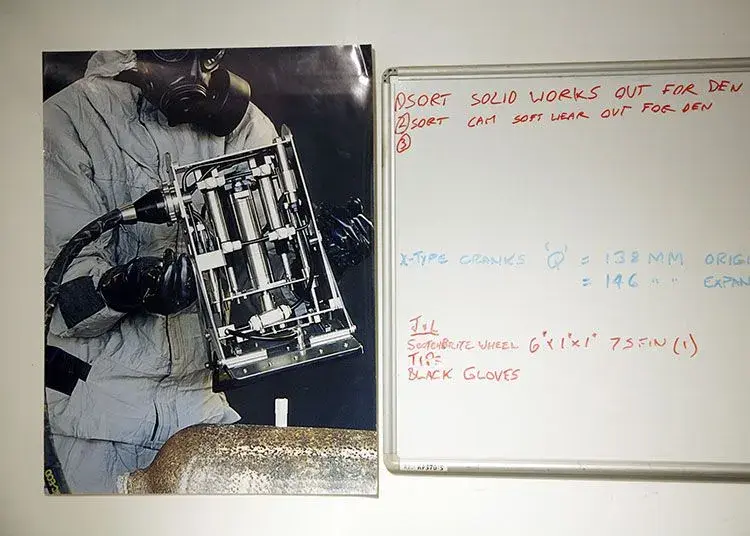 ① SORT SOLID WORKS OUT FOR DEN
② SORT CAM SOFT WEAR OUT FOR DEN
③
X-TYPE CRANKS 'Q' = 138 MM ORIGI
= 146 " " EXPAN
JUL
SCOTCHBRITE WHEEL 6" X 1" X 1" 7 S FIN (1)
BLACK GLOVES